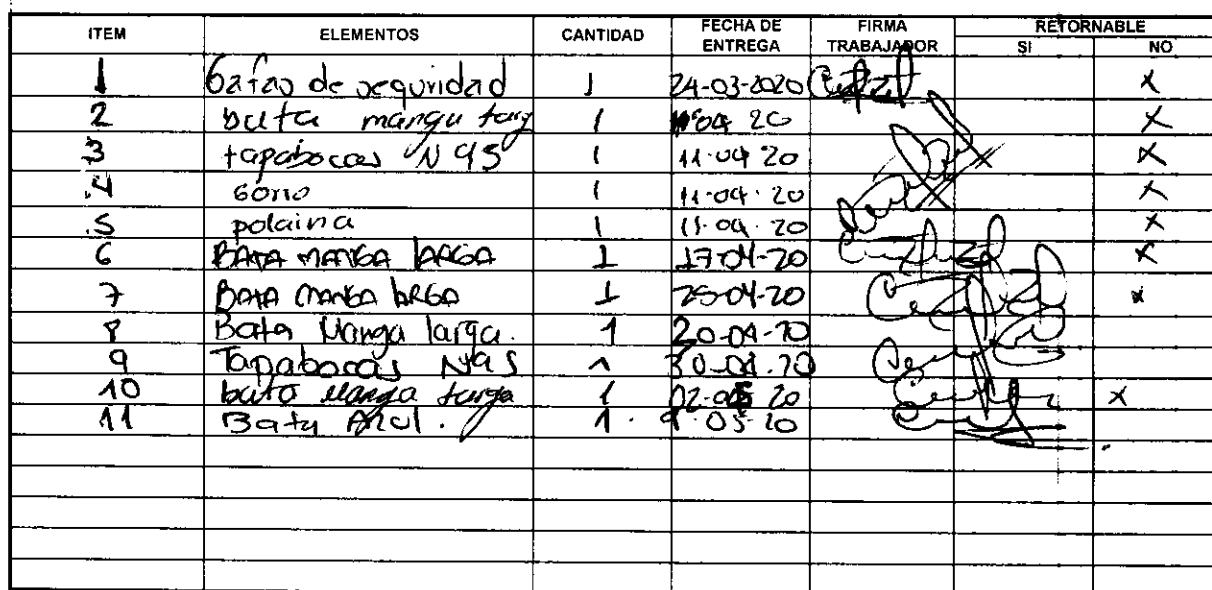 ITEM ELEMENTOS CANTIDAD FECHA DE ENTREGA FIRMA TRABAJADOR RETORNABLE
SI NO
1 Gafas de seguridad 1 24-03-2020 X
2 bata manga larg 1 04 20 X
3 tapabocas N 95 1 11-04 20 X
4 gorro 1 11-04-20 X
5 polaina 1 11-04-20 X
6 BATA MANGA LARGA 1 17-04-20 X
7 BATA MANGA LARGA 1 25-04-20 X
8 Bata Manga larga. 1 20-04-20
9 Tapabocas N95 1 30-04-20
10 bata Manga larga 1 02-05 20 X
11 Bata Azul. 1 9-05-20